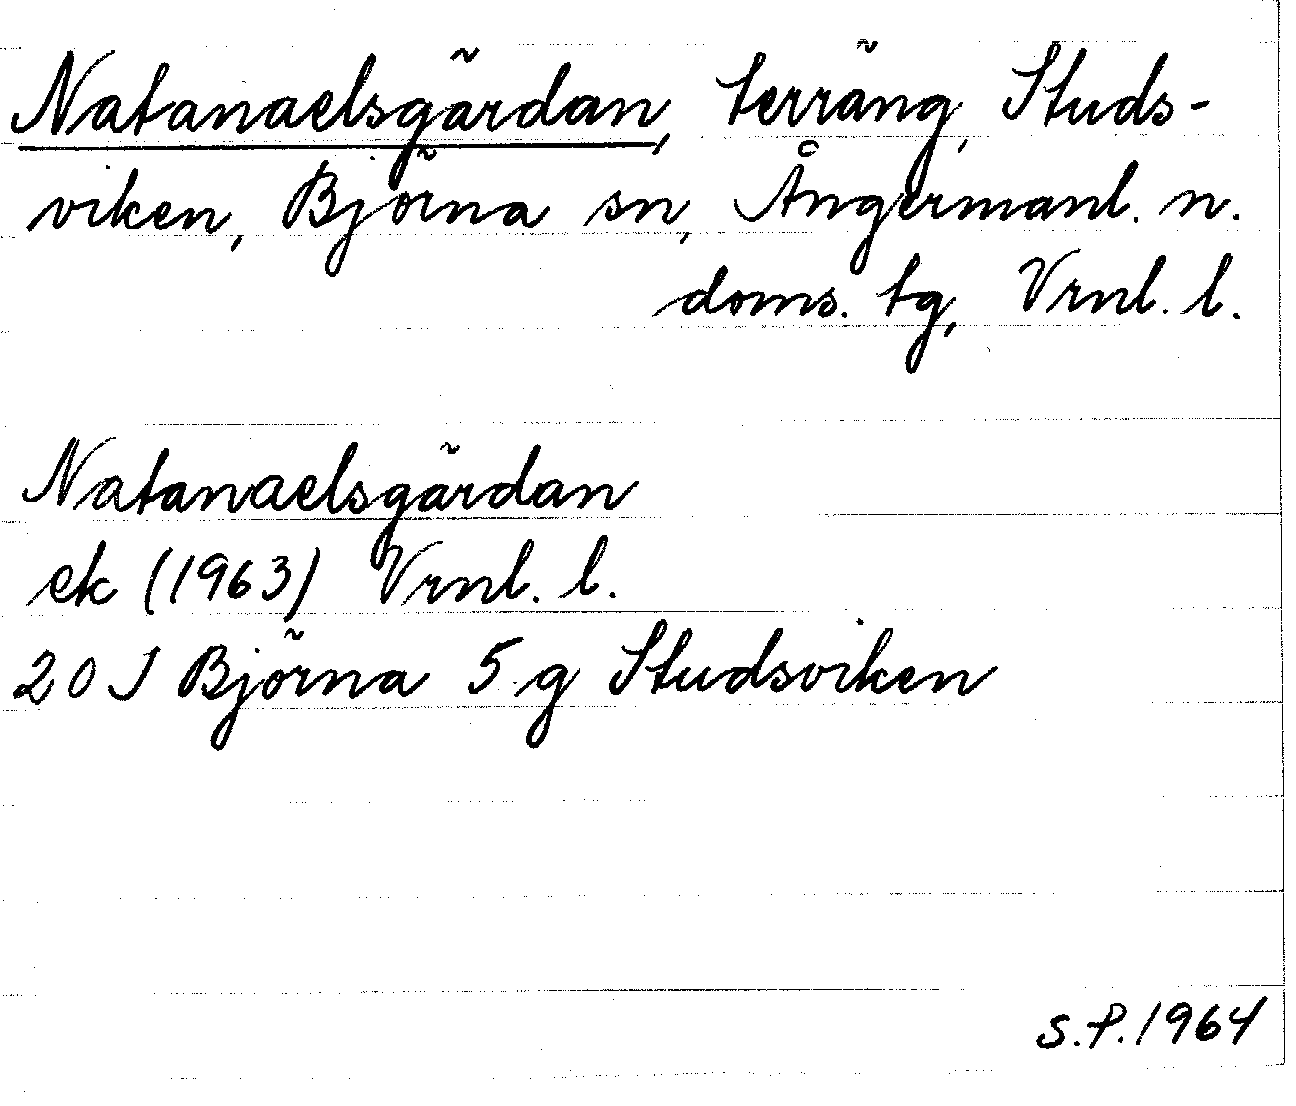 Natanaelsgärdan, terräng, Studs-
viken, Björna sn, Ångermanl. n.
doms. tg, Vrnl. l.
Natanaelsgärdan
ek (1963) Vrnl. l.
20 J Björna 5 g Studsviken
S.P. 1964